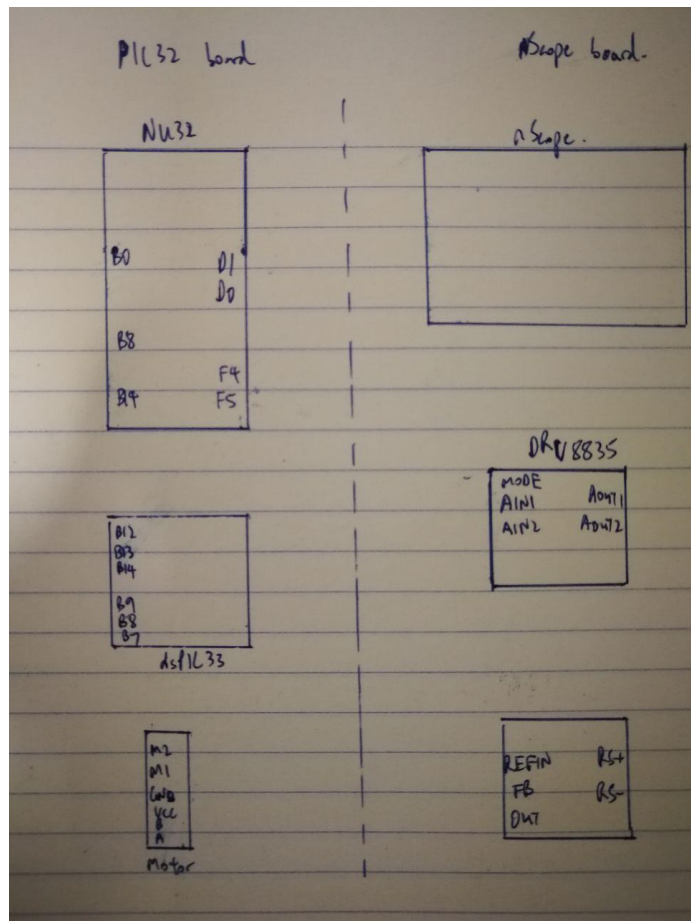 PIC32 board
NU32
B0
D1
D0
B8
F4
B14
F5
B12
B13
B14
B9
B8
B7
dsPIC33
M2
M1
GND
VCC
B
A
Motor
nScope board.
nScope.
DRV8835
MODE
AIN1
AOUT1
AIN2
AOUT2
REFIN
RS+
FB
RS-
OUT